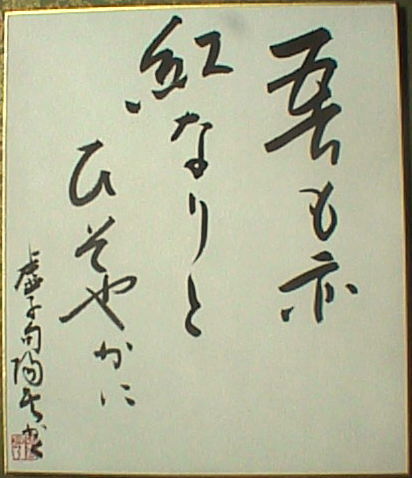 吾も亦
紅なりと
ひそやかに
虚子句